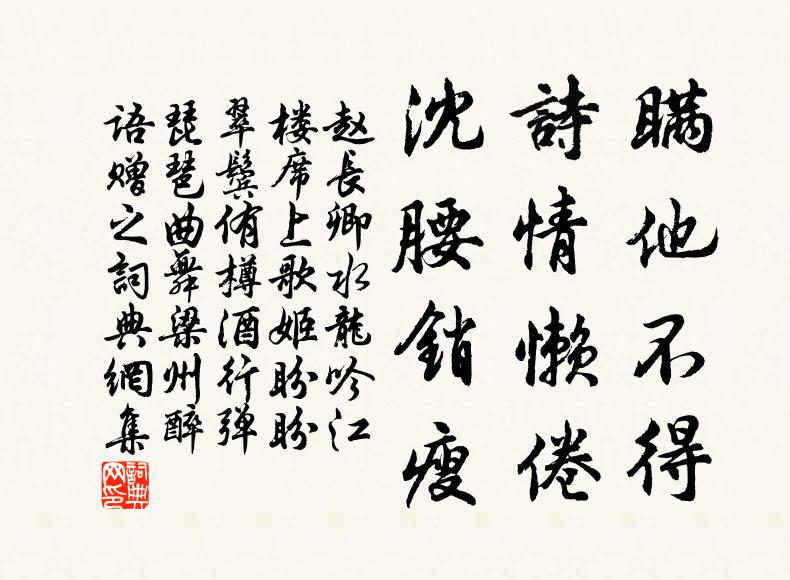 瞒他不得
詩情懒倦
沈腰銷瘦
赵長卿水龍吟江
楼席上歌姬盼盼
翠鬓侑樽酒行弹
琵琶曲舞梁州醉
语赠之詞典網集
詞典网印